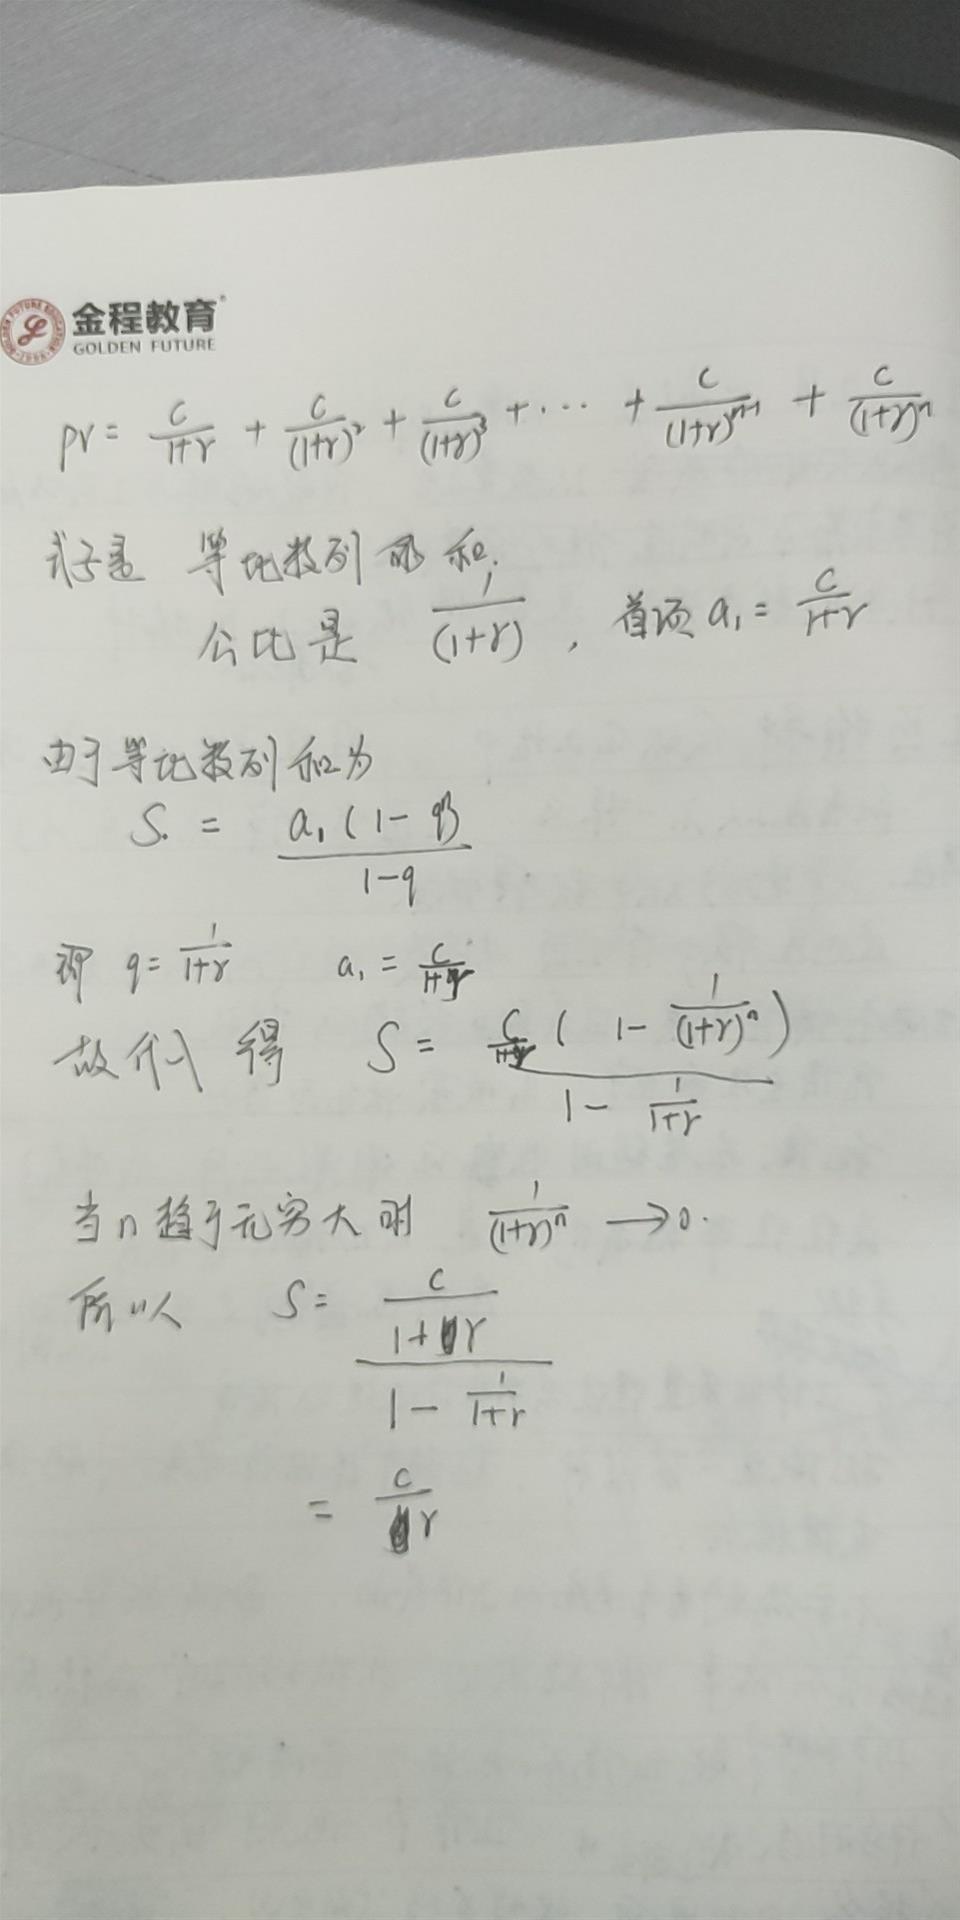 金程教育
GOLDEN FUTURE
PV = C/(1+r) + C/(1+r)² + C/(1+r)³ + ··· + C/(1+r)ⁿ⁻¹ + C/(1+r)ⁿ
式子是 等比数列 的 和.
公比是 1/(1+r) , 首项 a₁ = C/(1+r)
由于等比数列和为
S. = a₁(1-qⁿ)/(1-q)
即 q = 1/(1+r) a₁ = C/(1+r)
故代入 得 S = C/(1+r) ( 1 - 1/(1+r)ⁿ ) / (1 - 1/(1+r))
当n趋于无穷大时 1/(1+r)ⁿ → 0.
所以 S = (C/(1+r)) / (1 - 1/(1+r))
= C/r